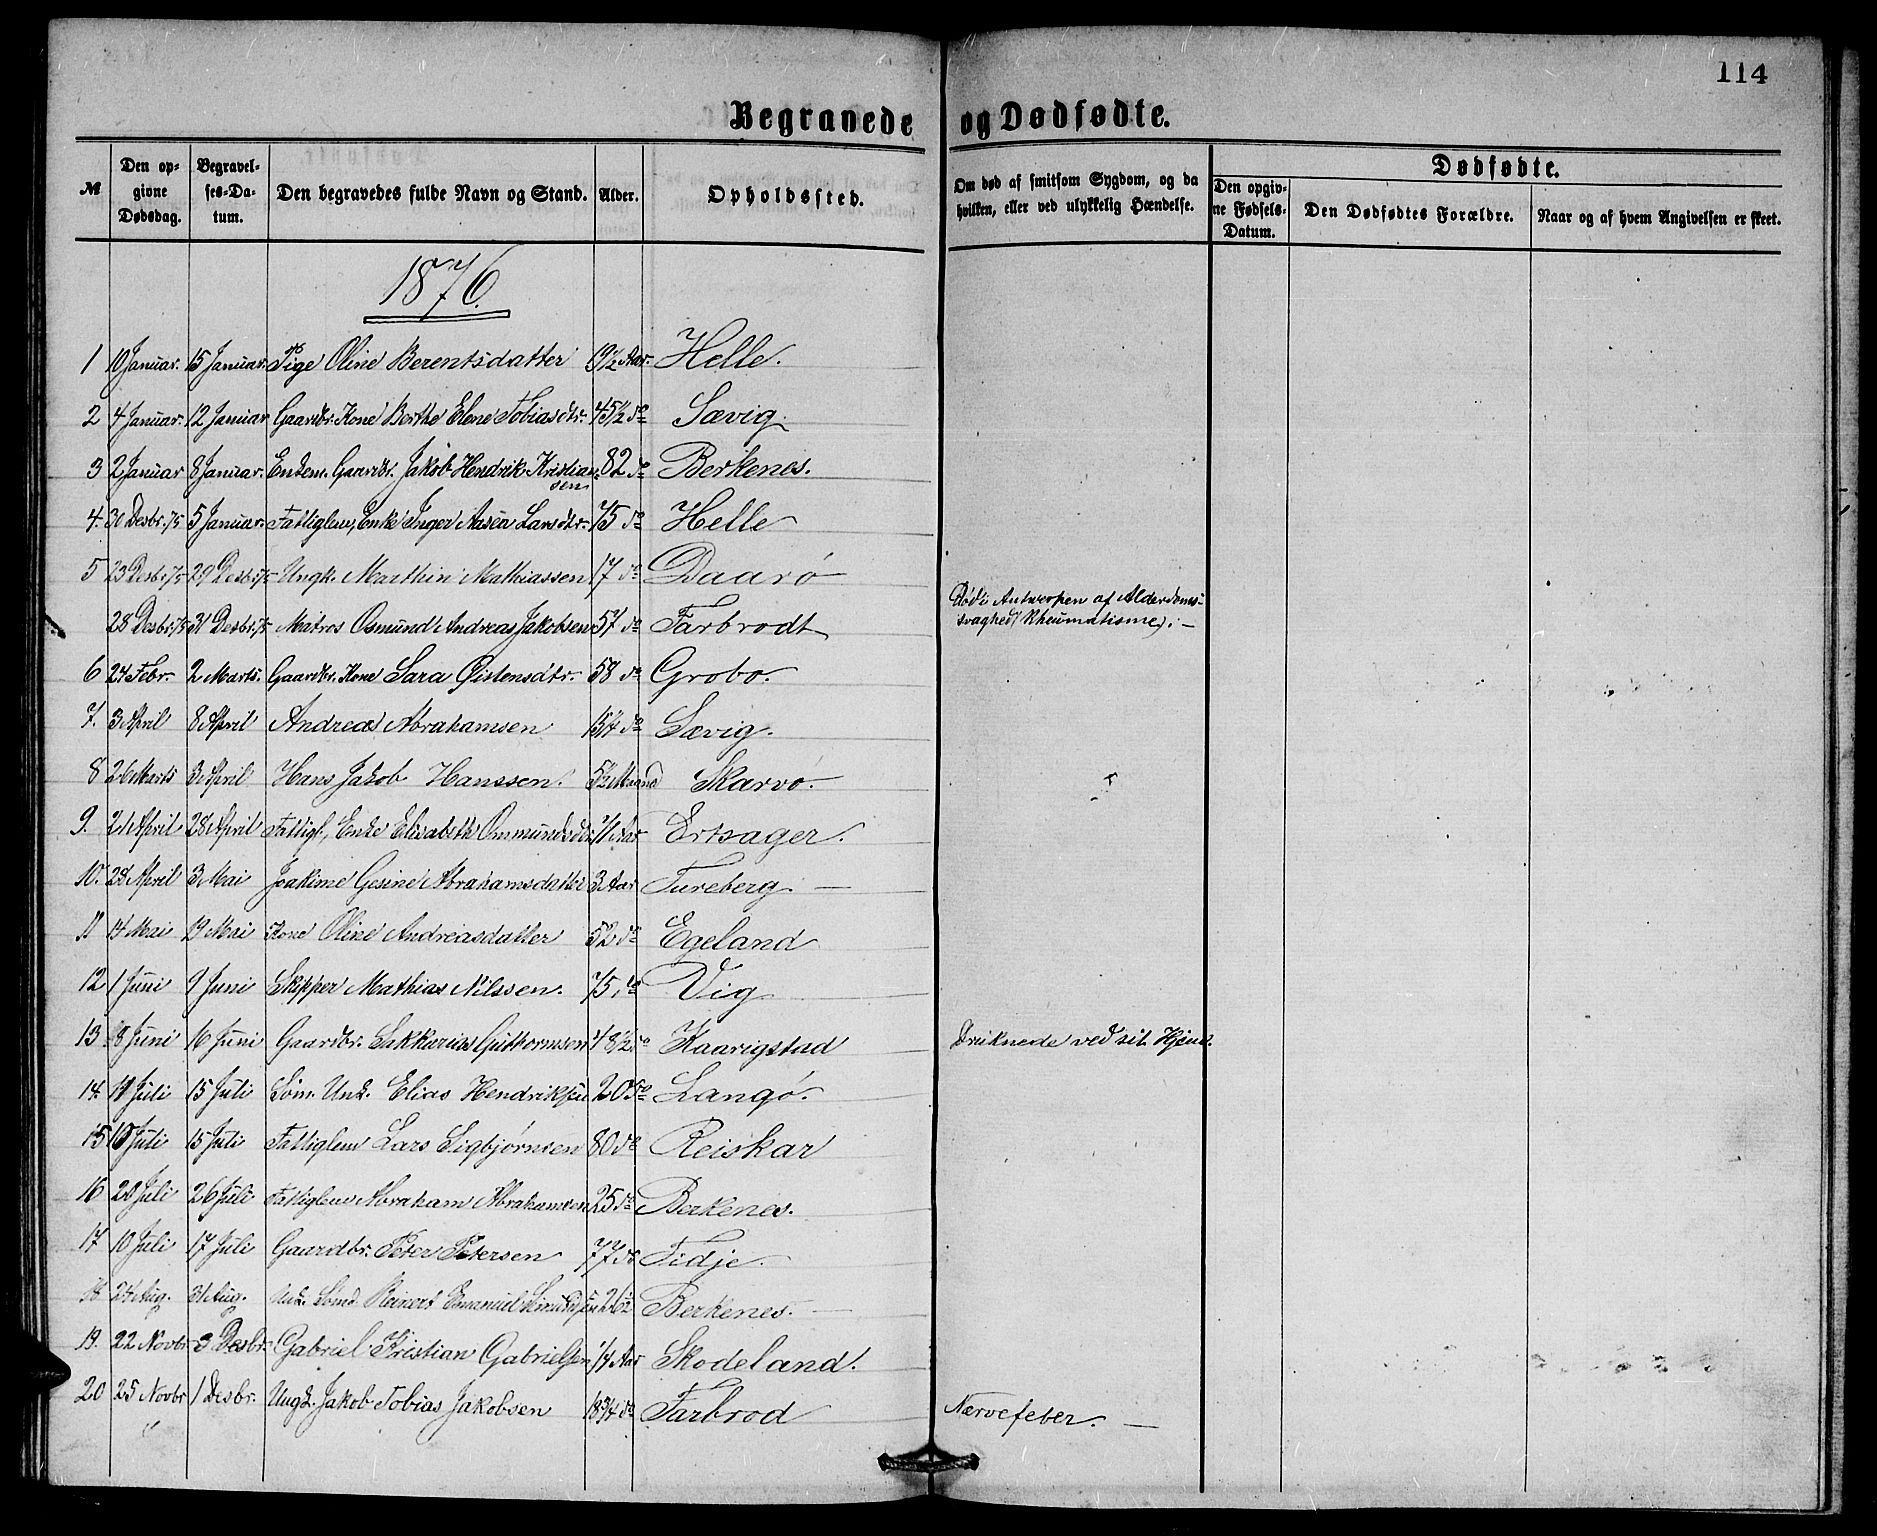 114
Begravede og Dødfødte.
№ | Den opgivne Dødsdag. | Begravelses-Datum. | Den begravedes fulde Navn og Stand. | Alder. | Opholdssted. | Om død af smitsom Sygdom, og da hvilken, eller ved ulykkelig Hændelse. | Dødfødte. | Den opgivne Fødsels-Datum. | Den Dødfødtes Forældre. | Naar og af hvem Angivelsen er skeet.
1876.
1 10 Januar. 15 Januar. Pige Oline Berentsdatter 19½ Aar. Helle.
2 4 Januar. 12 Januar Gaardbr. Kone Berthe Elene Tobiasdtr. 45½ do Sævig.
3 2 Januar 8 Januar. Enkem. Gaardbr. Jakob Hendrik Kristiansen 82 do Berkenes.
4. 30 Desbr. 75 5 Januar. Fattiglem, Enke Inger Aasen Larsdtr. 75 do Helle
5 23 Desbr. 75 29 Desbr. 75 Ungk. Marthin Mathiassen 17 do Daarø
28 Desbr. 75 31 Desbr. 75 Matros Osmund Andreas Jakobsen 57 do Farbrodt Död i Antwerpen af Alderdoms-
svaghed (Rheumatisme). —
6 24 Febr. 2 Marts. Gaardbr. Kone Sara Øistensdtr. 58 do Grobo.
7. 3 April 8 April Andreas Abrahamsen 15¼ do Sævig.
8 26 Marts 3 April Hans Jakob Hanssen. 5½ Maaned Skarvö.
9. 21 April 28 April Fattigl., Enke Elisabeth Ommundsdtr. 71 Aar Ertsager.
10. 28 April 3 Mai Joakime Gesine Abrahamsdatter 3 Aar Tureberg. —
11 14 Mai 19 Mai Kone Oline Andreasdatter 52 do Egeland
12 1 Juni 9 Juni Skipper Mathias Nilssen. 75 do Vig
13 8 Juni 16 Juni Gaardbr. Sakkarias Guttormsen 48½ do Kaarigstad Druknede ved sit Hjem.
14. 11 Juli 15 Juli Söm. Unk. Elias Hendriksen 20 do Langö.
15 10 Juli 15 Juli Fattiglem Lars Sigbjørnsen 80 do Reiskar
16 20 Juli 26 Juli Fattiglem Abraham Abrahamsen 25 do Berkenes.
17 10 Juli 17 Juli Gaardbr. Peter Petersen 77 do Tidje.
18. 24 Aug. 31 Aug. Unk. Sömd. Reinert Emanuel 26½ Berkenes. —
19. 22 Novbr. 3 Desbr. Gabriel Kristian Gabrielsen ¼ Aar Skodeland.
20 25 Novbr 1 Desbr. Ungk. Jakob Tobias Jakobsen 18¾ do Farbrod Nærvefeber. —